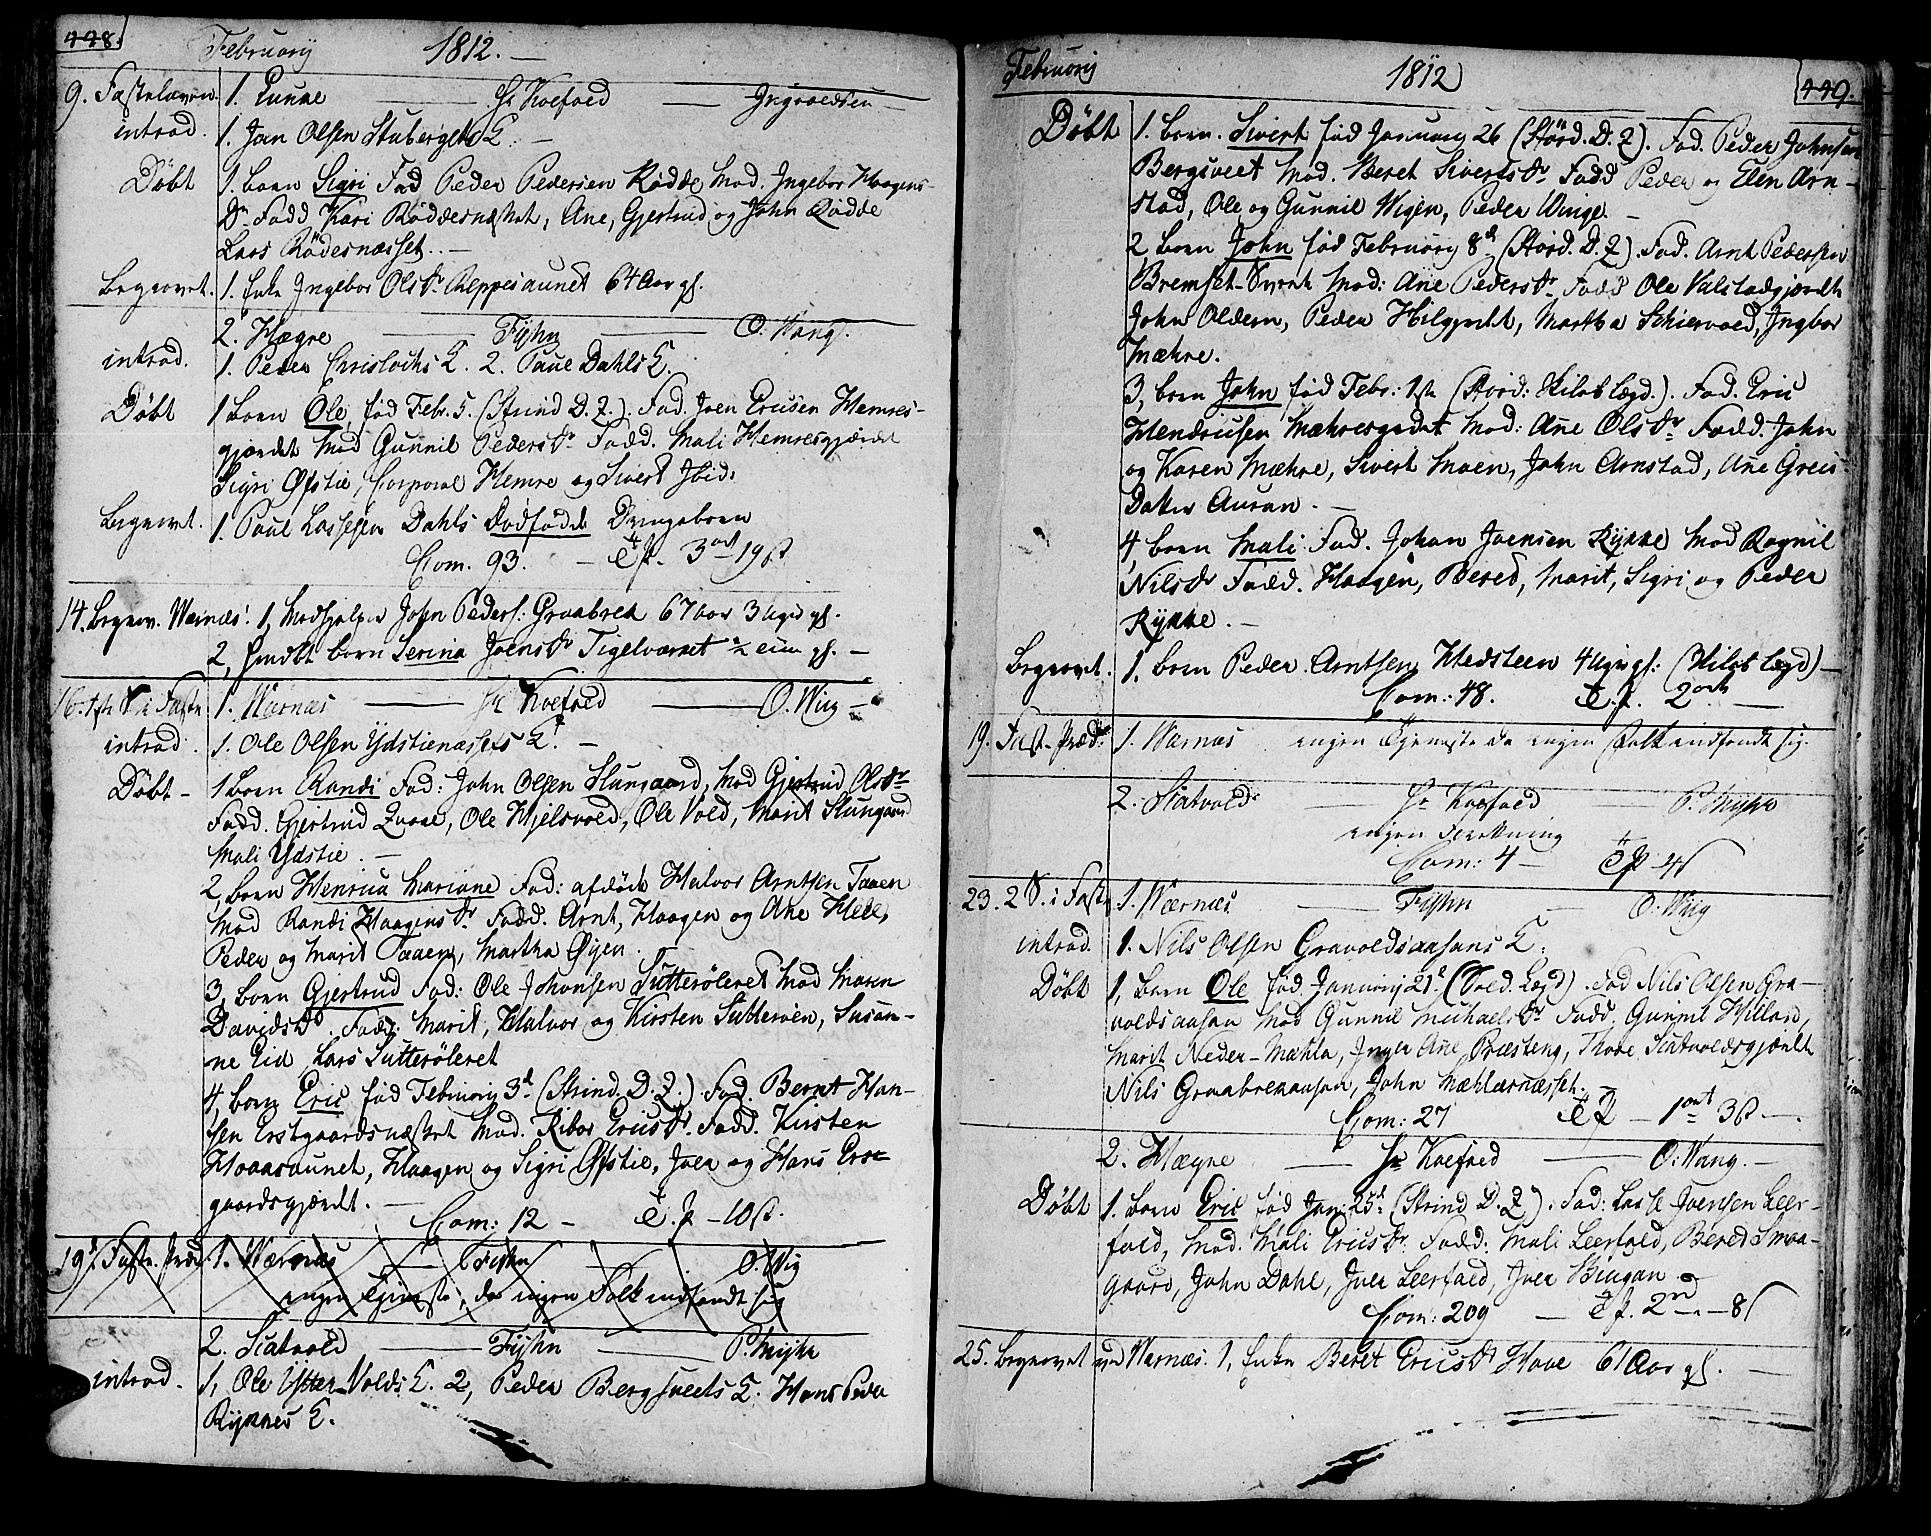 448.
Februarij 1812. —
9. Fastelavn. 1. Lunke — Hr Koefoed — Ingvoldsen —
introd. 1. Jon Olsen Stubergets E. —
Døbt 1. born Sigri Fad Peder Pedersen Rødde, Mod. Ingebor Haagens-
Dr Fadd Kari Røddesnæsset, Ane, Gjertrud og John Rødde
Lars Rødesnæsset. —
Begravet. 1. Enke Ingebor Olsdr Reppesaunet 64 Aar gl.
2. Hægre — Fijhn — O. Wang.
introd. 1. Peder E. 2. Paul Dahls E.
Døbt 1 born Ole, fød Febr. 5. (Strind D. Z.). Fad. Joen Ericsen Hemres-
gjærdet Mod Gunnil Pedersdr Fadd. Mali Hemresgjærdet
Sigri Øfstie, Corporal Hemre og Sivert Ibid.
Begravet. 1. Paul Lassesen Dahls Dødfødde Drengeborn
Com. 93. — 3 ort 19 ß
14. Begrav. Wærnæs. 1, John Peders: Graabrek 67 aar 3 uger gl.
2, born Serina Joensdr Tigelværket ½ gl. —
16. 1ste S. i Faste 1. Wærnæs — Hr Koefoed — O. Wiig —
introd. 1. Ole Olsen Ydstienæssets E. —
Døbt — 1 born Randi Fad: John Olsen Slungaard, Mod Gjertrud Olsdr
Fadd. Gjertrud, Ole Hjelsvold, Ole Vold, Marit Slungaard
Mali Ydstie. —
2, born Henrica Mariane Fad: afdøde Halvor Arntsen Taaen
Mod Randi Haagensdr Fadd. Arnt, Haagen og Ane Helle,
Peder og Marit Taaen, Martha Øyen.
3, born Gjertrud Fad: Ole Johansen Sutterøleret Mod Maren
Davidsdr. Fadd: Marit, Halvor og Kirsten Sutterøen, Susan-
ne Eid Lars Sutterøleret
4, born Eric fød Februarij 3d (Strind D. Z.) Fad. Bernt Han-
sen Erstgaardsnæsset Mod. Ribor Ericsdr. Fadd. Kirsten
Hoaasaunet, Haagen og Sigri Øfstie, Iver og Hans Ers-
gaardsgjærdet. —
Com: 12 — 10 ß.
19. Faste. Præd. 1. Wærnæs — Fijhn — O. Wiig
ingen Tjeneste, da ingen Folk indfandt sig
2. Skatvold — Fijhn — P. Mijhr
introd. 1, Ole Ytter Volds E. 2, Peder Bergsveets E. Hans Peder
Rykkes E.
Februarij 1812 449.
Døbt 1. born. Sivert fød Januarij 26 (Størd. D. Z). Fad. Peder Johnsen
Bergsveet Mod. Beret Sivertsdr Fadd Peder og Elen Arn-
stad, Ole og Gunnil Wigen, Peder Winge. —
2 born John fød Februarij 8d (Størd. D. Z). Fad. Arnt Pedersen
Bremset-Svert Mod: Ane Pedersdr Fadd Ole Valstadgjærdet
John Oldern, Peder Hilgjerdet, Martha Schiervold, Ingbor
Mæhre.
3, born John fød Febr: 1ste (Stord: Skiløb Lægd.). Fad. Eric
Hendricsen Mæhresgrdet Mod: Ane Olsdr Fadd. John
og Karen Mæhre, Sivert Moen, John Arnstad, Ane Greis
Dater Auran. —
4, born Mali Fad. Johan Joensen Rykke Mod Ragnil
Nilsdr Fadd. Haagen, Bered, Marit, Sigri og Peder
Rykke. —
Begravet. 1. born Peder Arntsen Hedsteen 4 uger gl: (Skiløb Lægd) —
Com: 48. 2 ort —
19. Fast-Præd. 1. Wærnæs ingen Tjeneste da ingen Folk indfandt sig.
2. Skatvold — Hr Koefoed P. Mijhr
ingen
Com: 4 — 4 ß
23. 2 S. i Faste 1. Wærnæs — Fijhn — O. Wiig
introd. 1. Nils Olsen Gravoldsaasens E.
Døbt 1, born Ole fød Januarij 21d. (Sold. Lægd). Fad Nils Olsen Gra-
voldsaasen Mod Gunnil Michaelsdr Fadd. Gunnil Hilland,
Marit Neder-Mæhla, Inger Ane Præsteng, Thore Skatvoldsgjærdet
Nils Graabrekaasen, John Mæhlarnæsset. —
Com: 27 — 1 ort 3 ß —
2. Hægre — Hr Koefoed — O. Wang. —
Døbt 1. born Eric fød Jan: 25d. (Strind D. Z). Fad: Lasse Joensen Leer-
fald, Mod. Mali Ericsdr. Fadd: Mali Leerfald, Beret Smaa-
gaard, John Dahl, Iver Leerfald, Iver Bingan.
Com: 209 — 2 — 8 ß
25. Begravet ved Wærnæs. 1, Enke Beret Ericsdr Hove 61 Aar gl. —